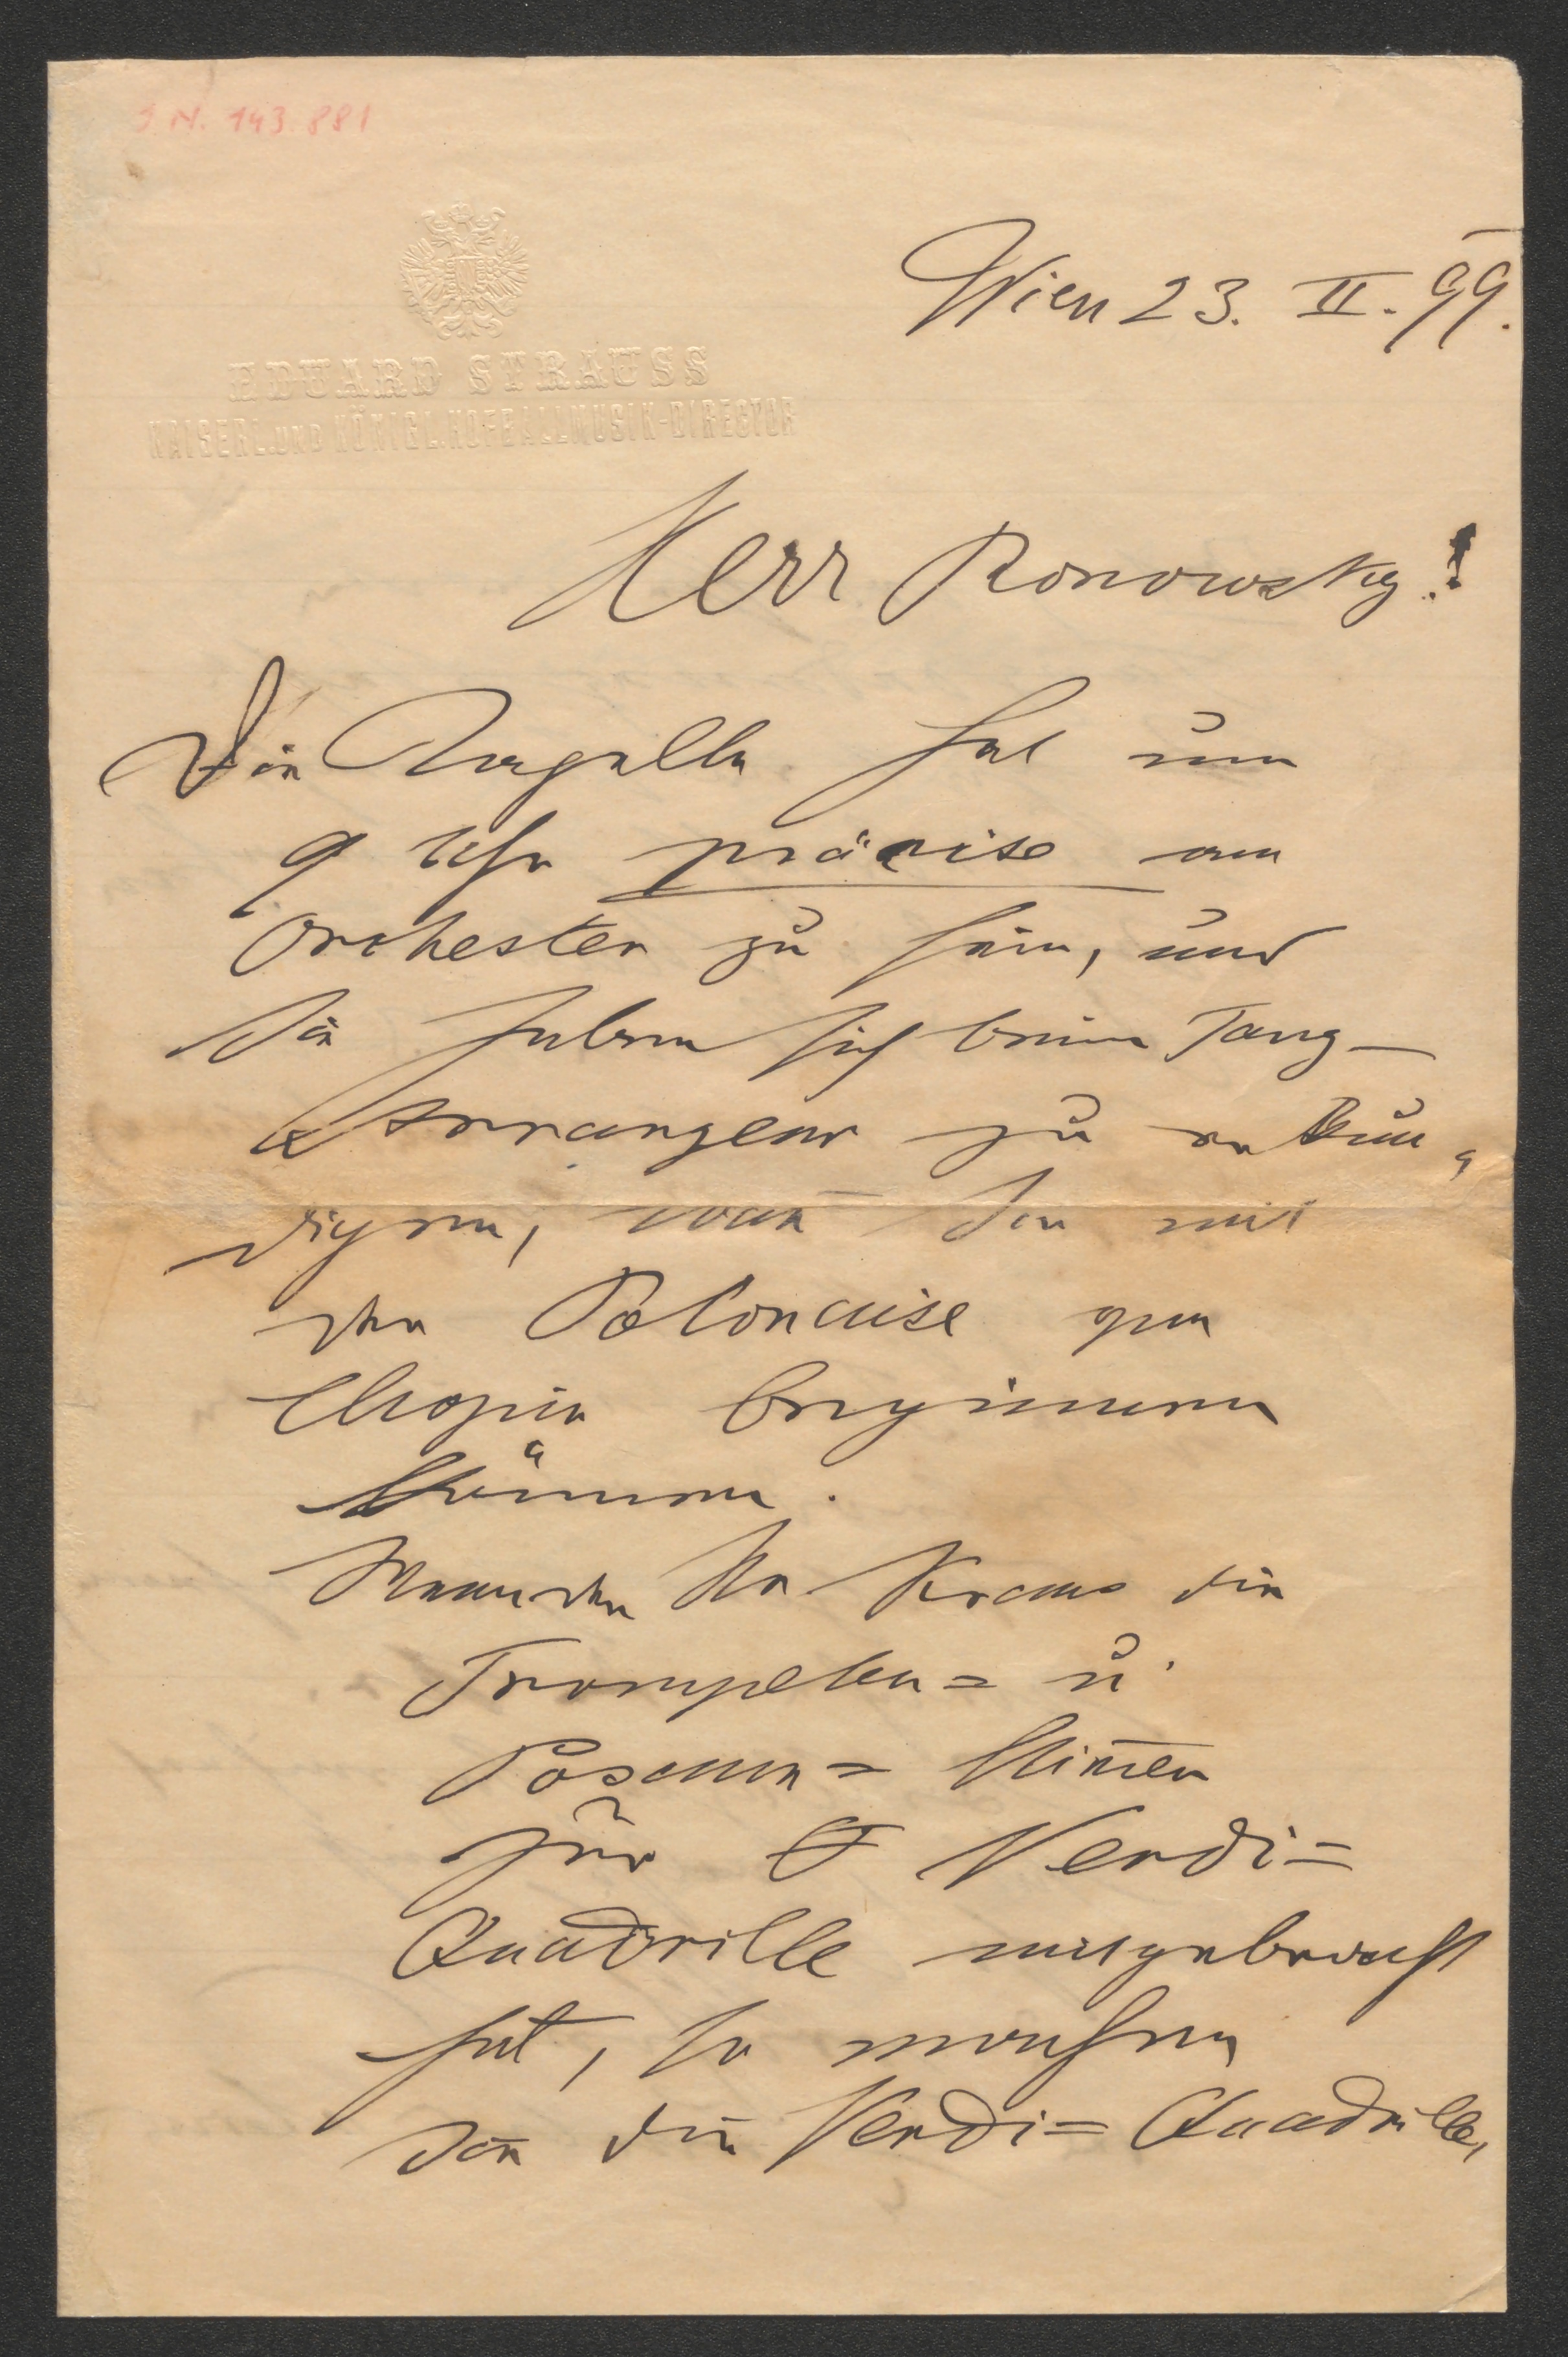 J. N. 143.881
Wien 23. II. 99.
EDUARD STRAUSS
KAISERL. UND KÖNIGL. HOFBALLMUSIK-DIRECTOR
Herr Ronowsky!
Die Kapelle hat um
9 Uhr präcise am
Orchester zu sein, und
Sie haben sich beim Tanz-
Arrangeur zu erkun-
digen, wan̄ Sie mit
der Polonaise von
Chopin beginnen
können.
Wenn der Kraus die
Trompeten= u.
Posaun= Stim̄en
für Verdi=
Quadrille mitgebracht
hat, so machen
Sie die Verdi= Quadrille,